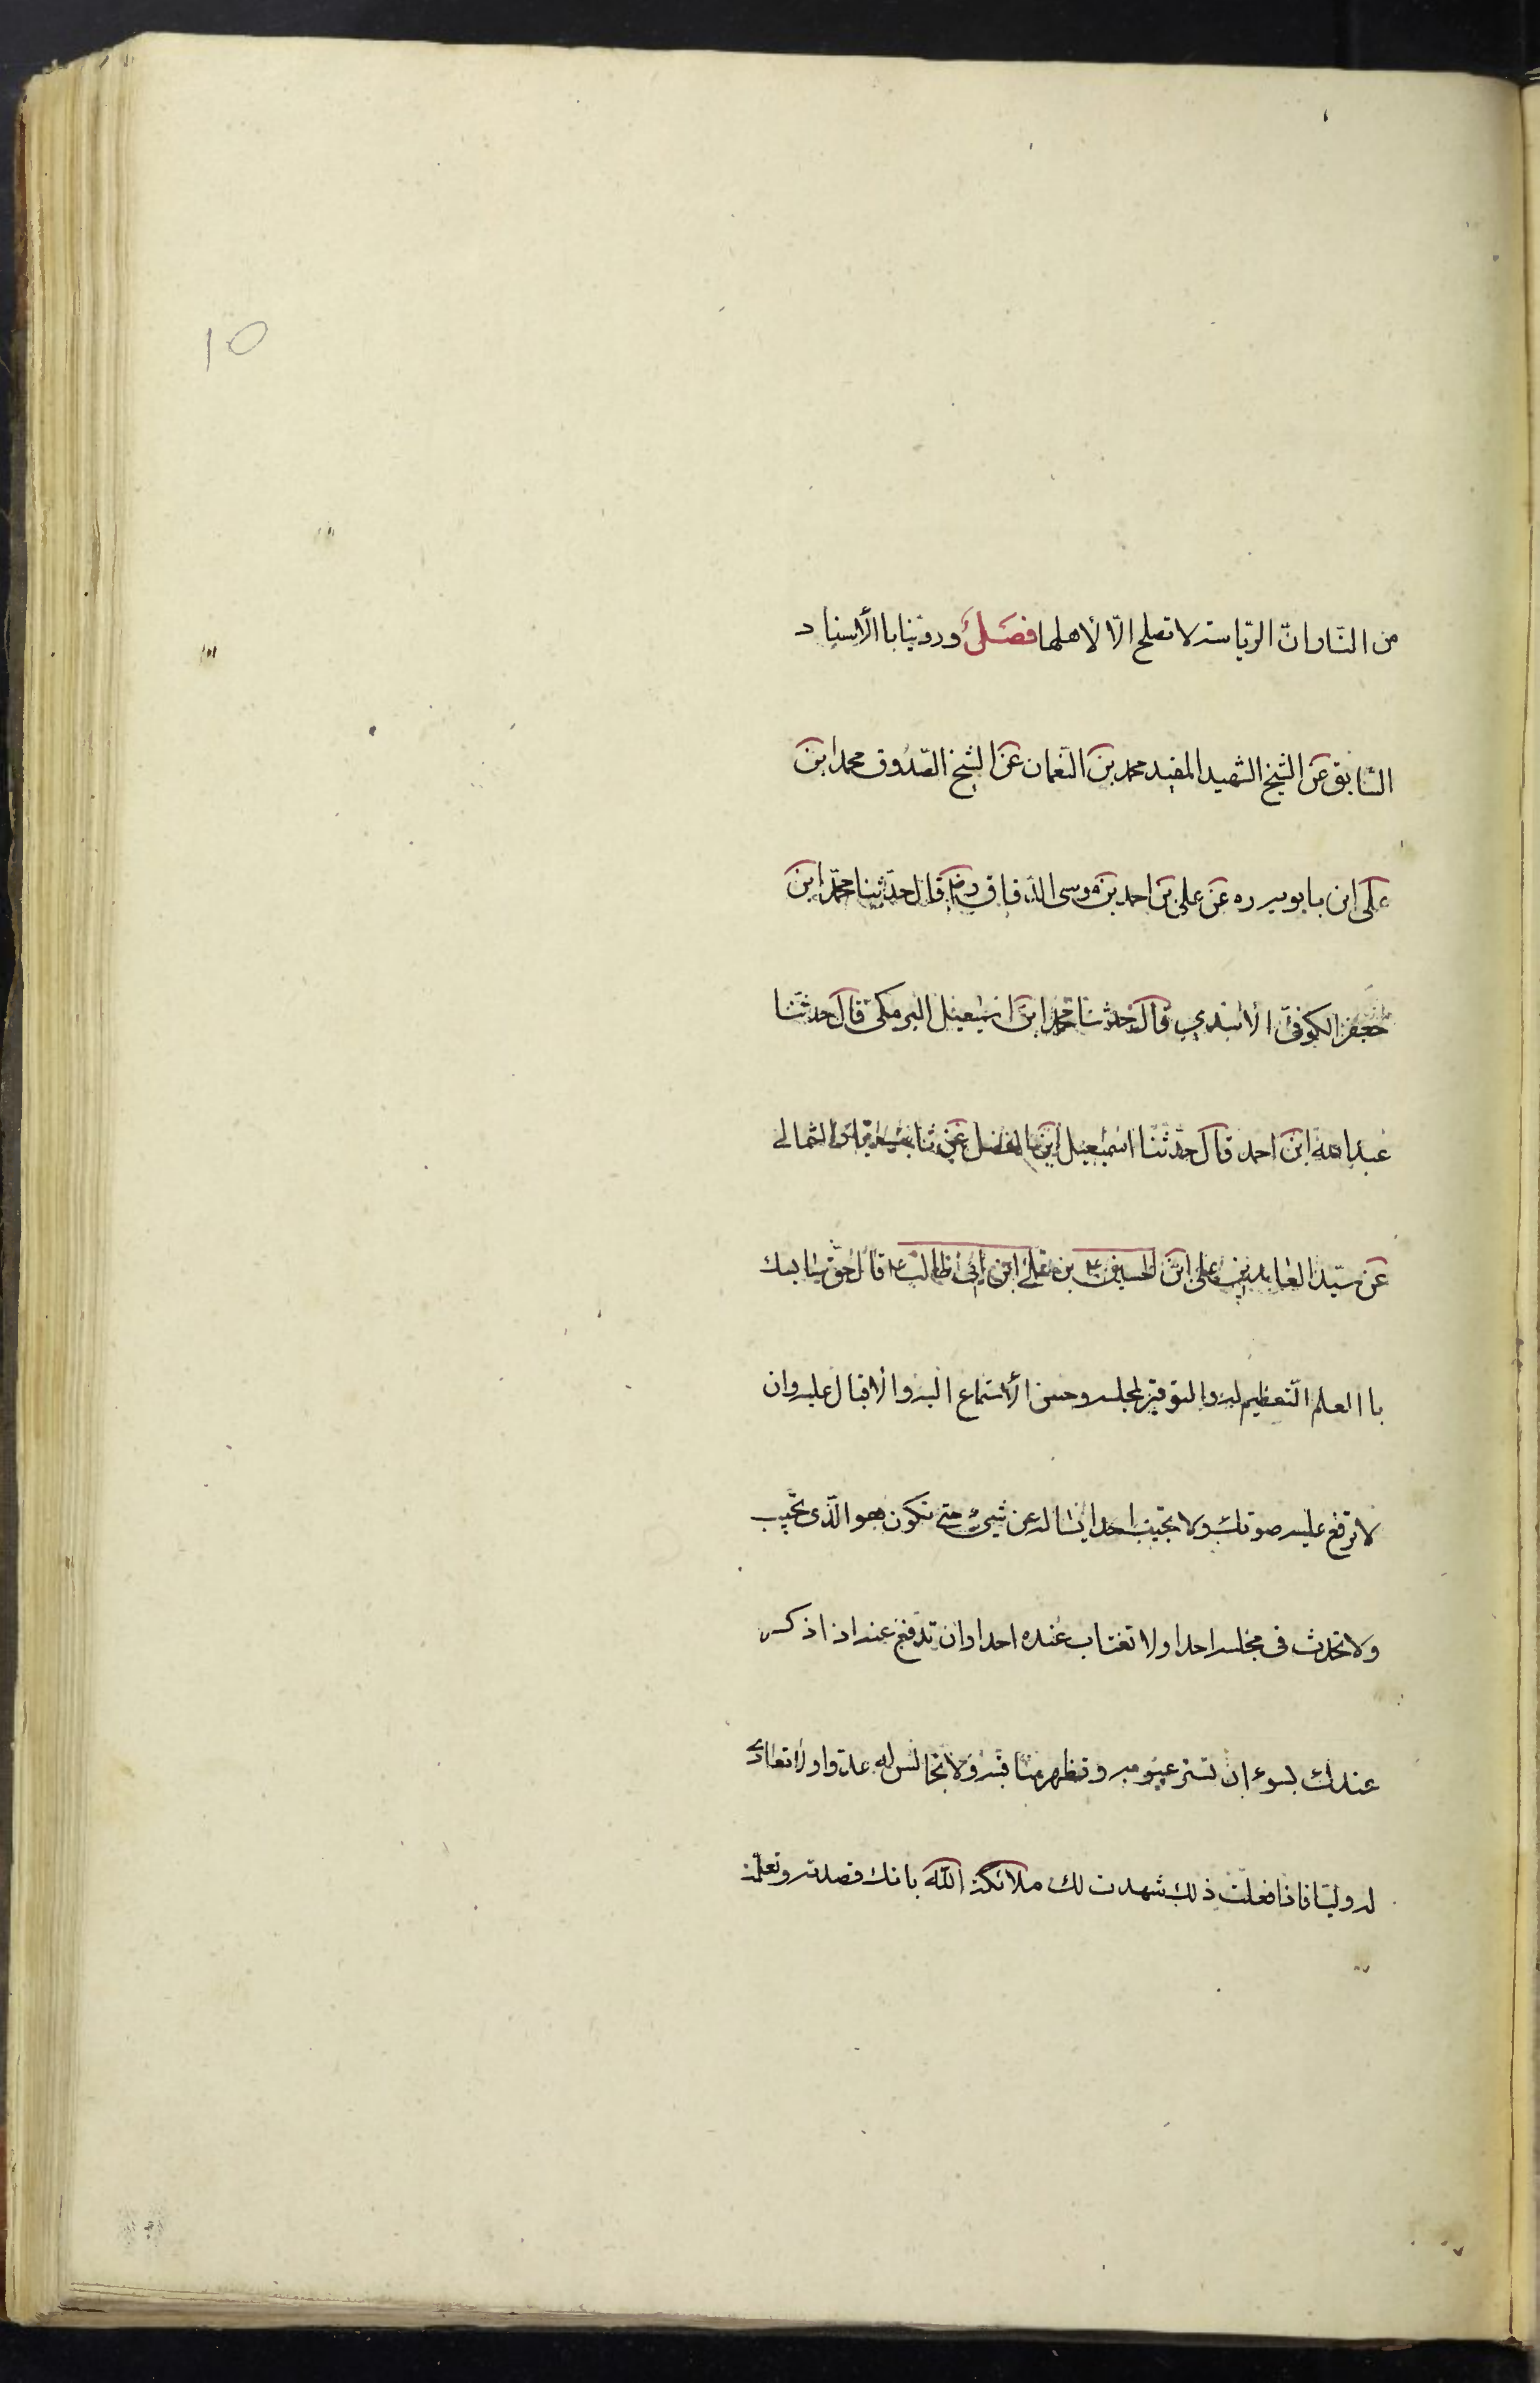 10
من النار ان الرياسة لا تصلح الّا لأهلها فصل وروّينا با الأسناد
السّابق عن الشيخ الشهيد المفيد محمد بن النعمان عن الشيخ الصّدوق محمد ابن
على ابن بابويه ره عن على بن احمد بن موسى الدقاق رض قال حدّثنا محمّد ابن
جعفر الكوفىّ الأسدي قال حدثنا محمد ابن اسمعيل البرمكى قال حدثنا
عبد الله ابن احمد قال حدّثنا اسمعيل ابن الفضل عن ثابت الثمالى
عن سيّد العابدين على ابن الحسين ع بن على ابن ابى طالب ع قال حق سايسك
با العلم التعظيم له والتوقير لمجلسه وحسن الأستماع اليه والأقبال عليه وان
لا ترفع عليه صوتك ولا تجيب احدا يساله عن شيئ حتى تكون هو الّذى تجيب
ولا تحدث فى مجلسه احدا ولا تغتاب عنده احدا وان تدفع عنه اذا ذكر
عندك بسوء ان تستر عيوبه وتظهر مناقبه ولا تجالس له عدوا ولا تعادى
له وليّا فاذا فعلت ذلك شهدت لك ملائكة اللّه بانك قصدته وتعلّمت